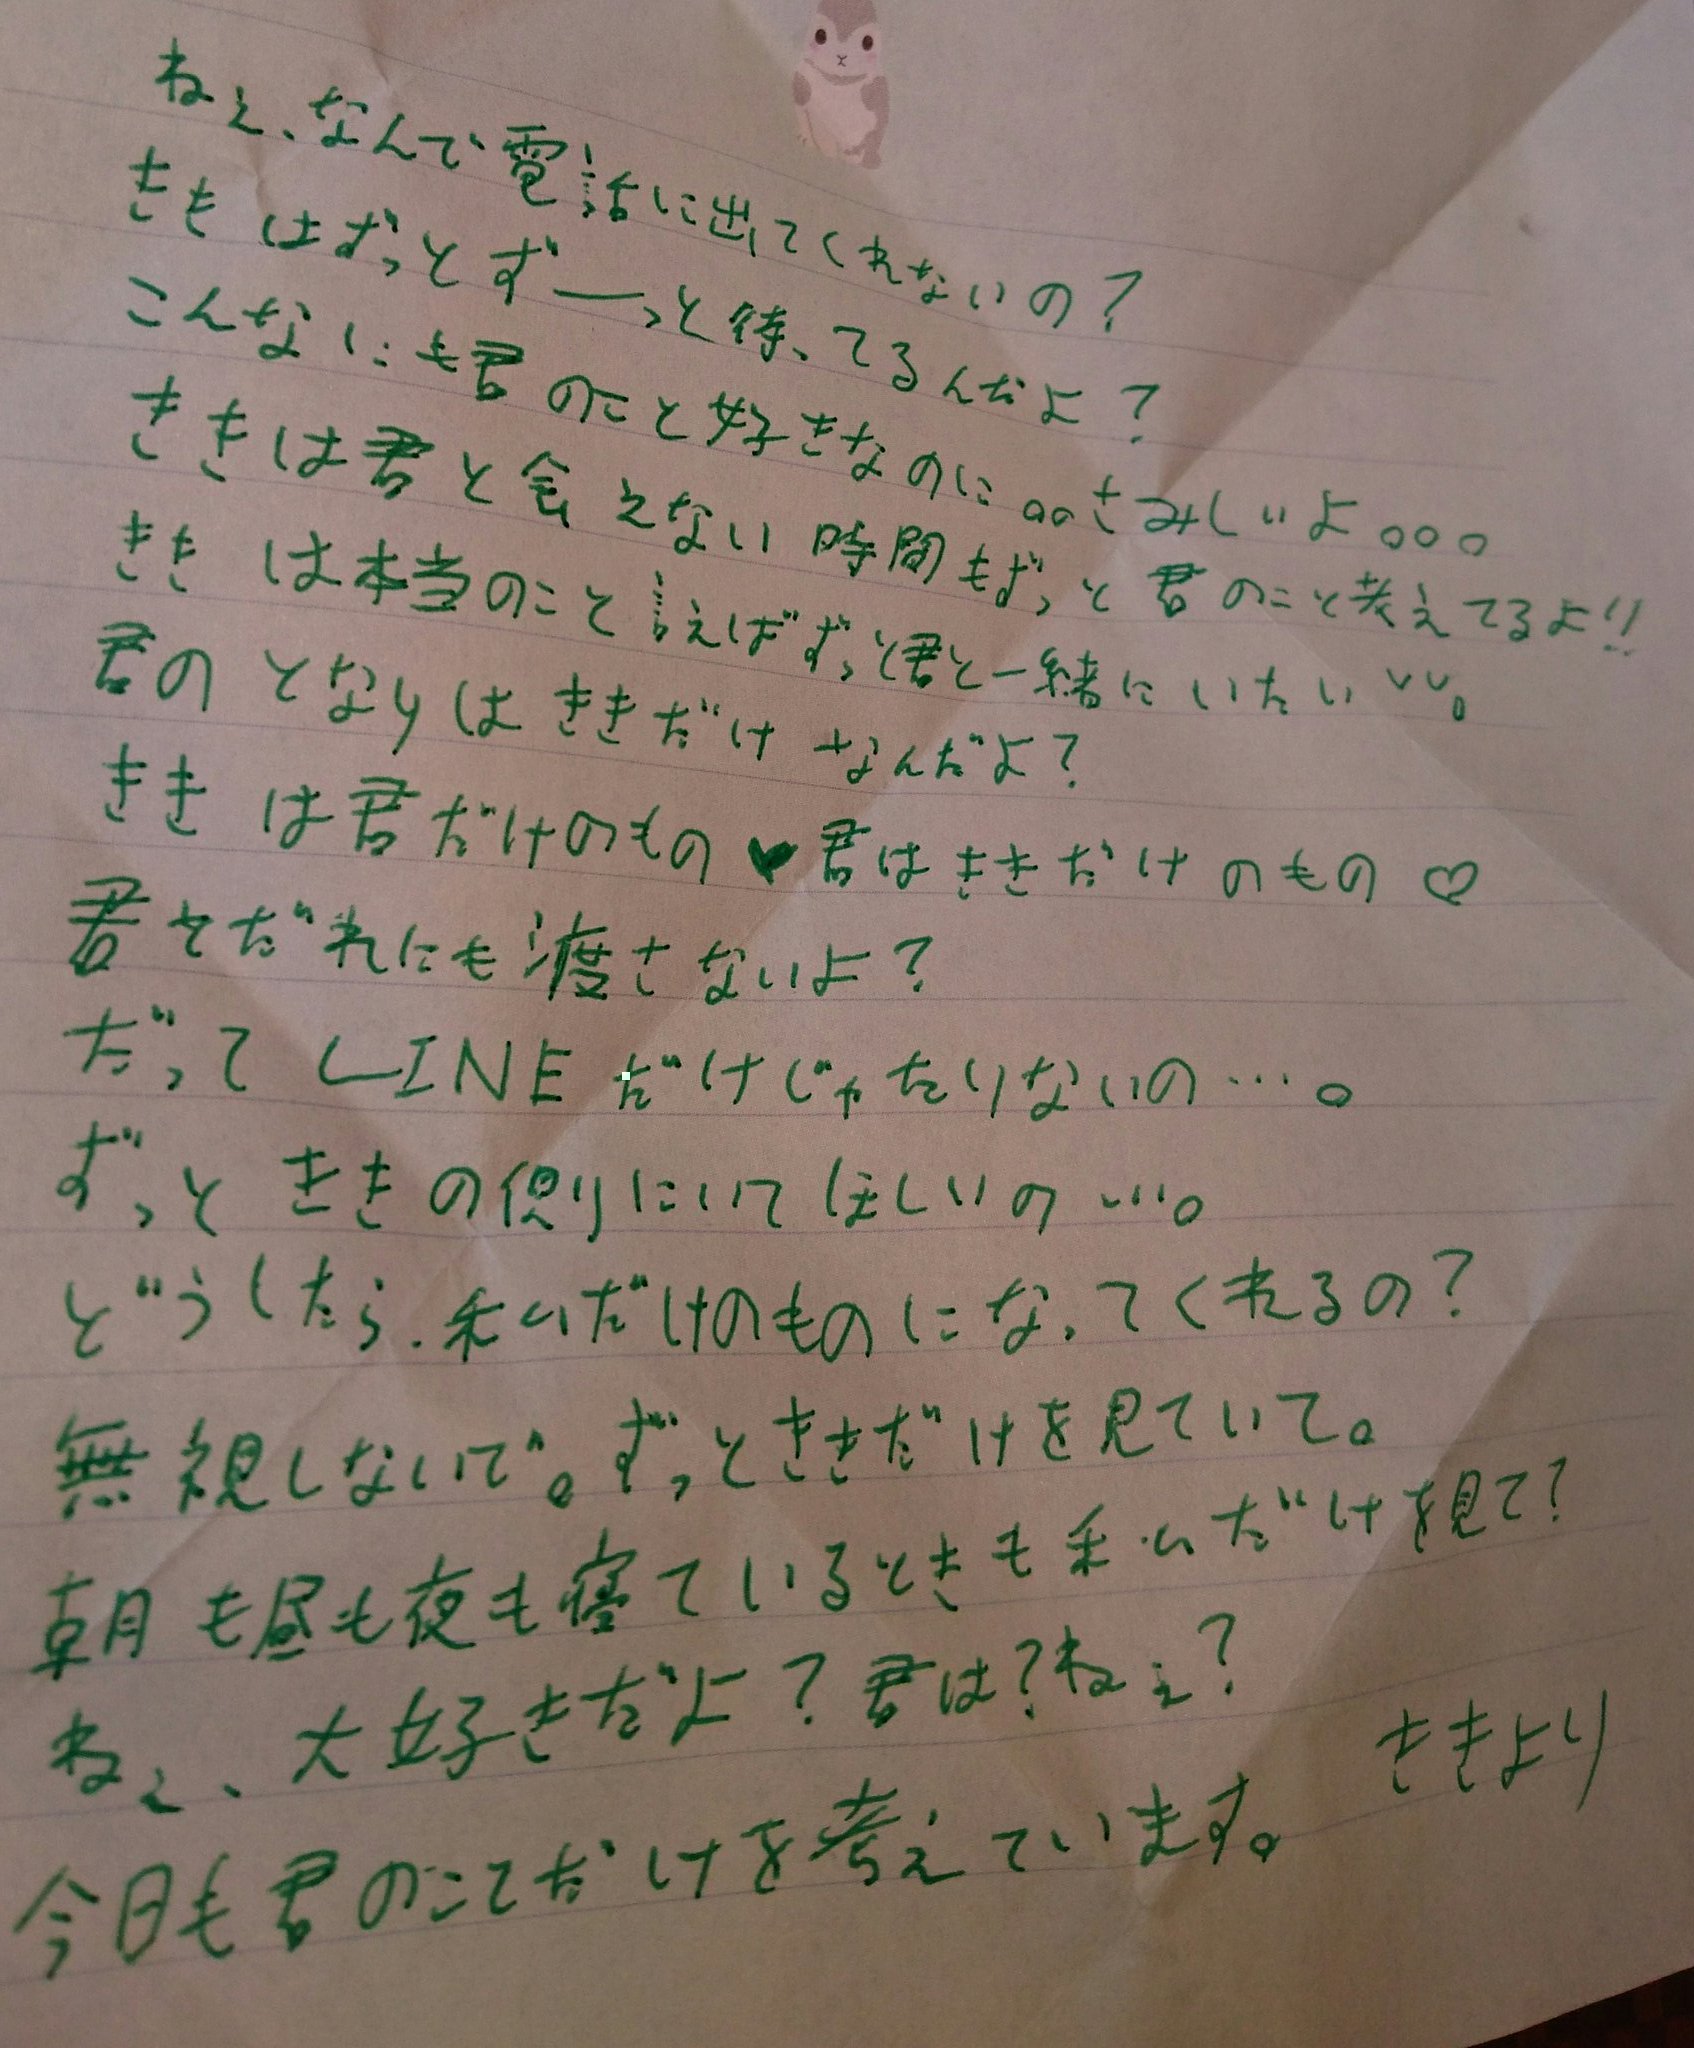 ねぇ、なんで電話に出てくれないの？
きもはずっとずーっと待ってるんだよ？
こんなにも君のこと好きなのに。。さみしいよ。。。
ききは君と会えない時間もずっと君のこと考えてるよ!!
ききは本当のこと言えばずっと君と一緒にいたい、、。
君のとなりはききだけなんだよ？
ききは君だけのもの♥君はききだけのもの♡
君をだれにも渡さないよ？
だってLINEだけじゃたりないの…。
ずっとききの側にいてほしいの…。
どうしたら、私だけのものになってくれるの？
無視しないで。ずっとききだけを見ていて。
朝も昼も夜も寝ているときも私だけを見て？
ねぇ、大好きだよ？君は？ねぇ？
ききより
今日も君のことだけを考えています。